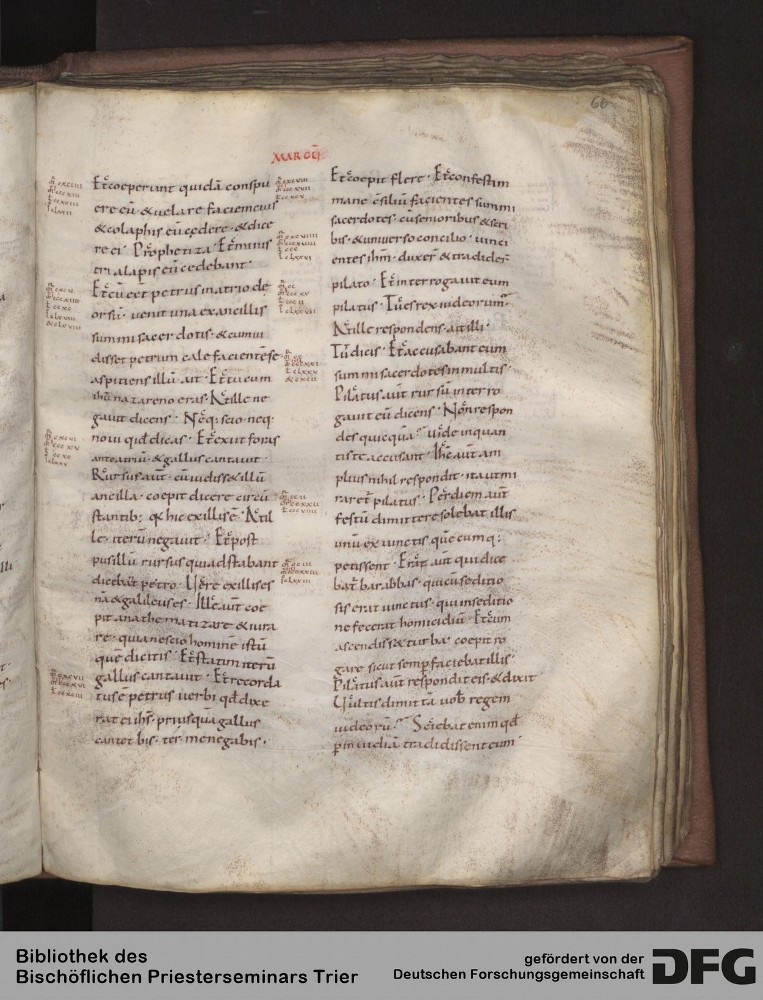 66
MARCUS
Et coeperunt quidā conspu
ere eū & uelare faciem eius
& colaphis eū cedere · & dice
re ei · Prophetiza · Et minis
tri alapis eū cedebant ·
Et cū eēt petrus in atrio de
orsū · uenit una ex ancillis
summi sacerdotis · & cum ui
disset petrum calefacientē se
aspitiens illū ait · Et tu cum
ihū nazareno eras · At ille ne
gauit dicens · Neq; scio neq·
noui quid dicas · Et exiit foras
ante atriū · & gallus cantauit ·
Rursus aūt · cū uidiss& illū
ancilla · coepit dicere circū
stantib; · quia hic ex illis ē · At il
le iterū negauit · Et post
pusillū rursus qui adstabant
dicebant petro · Uere ex illis es
nā & galileus es · Ille aūt coe
pit anathematizare & iura
re · quia nescio hominē istū
quē dicitis · Et statim iterū
gallus cantauit · Et recorda
tus ē petrus uerbi qđ dixe
rat ei ihs · priusquā gallus
cantet bis · ter me negabis ·
Et coepit flere · Et confestim
mane c̄siliū facientes summi
sacerdotes · cū senioribus & scri
bis · & uniuerso concilio · uinci
entes ihm̄ · duxer̄ & tradider̄
pilato · Et interrogauit eum
pilatus · Tu es rex iudeorum ·
At ille respondens · ait illi ·
Tu dicis · Et accusabant eum
summi sacerdotes in multis ·
Pilatus aūt rursū interro
gauit eū dicens · Non respon
des quicquā · uide in quan
tis te accusant · Ihs aūt am
plius nihil respondit · ita ut mi
raret̄ pilatus · Per diem aūt
festū dimittere solebat illis
unū ex uinctis quē cumq;
petissent · Erat aūt qui dice
bat̄ barabbas · qui cū seditio
sis erat uinctus · qui in seditio
ne fecerat homicidiū · Et cum
ascendiss& turba · coepit ro
gare sicut semp faciebat illis ·
Pilatus aūt respondit eis · & dixit
Uultis dimittā uob regem
iudeorū · Sciebat enim qđ
p̄ inuidiā tradidissent eum ·
Bibliothek des
Bischöflichen Priesterseminars Trier
gefördert von der
Deutschen Forschungsgemeinschaft
DFG